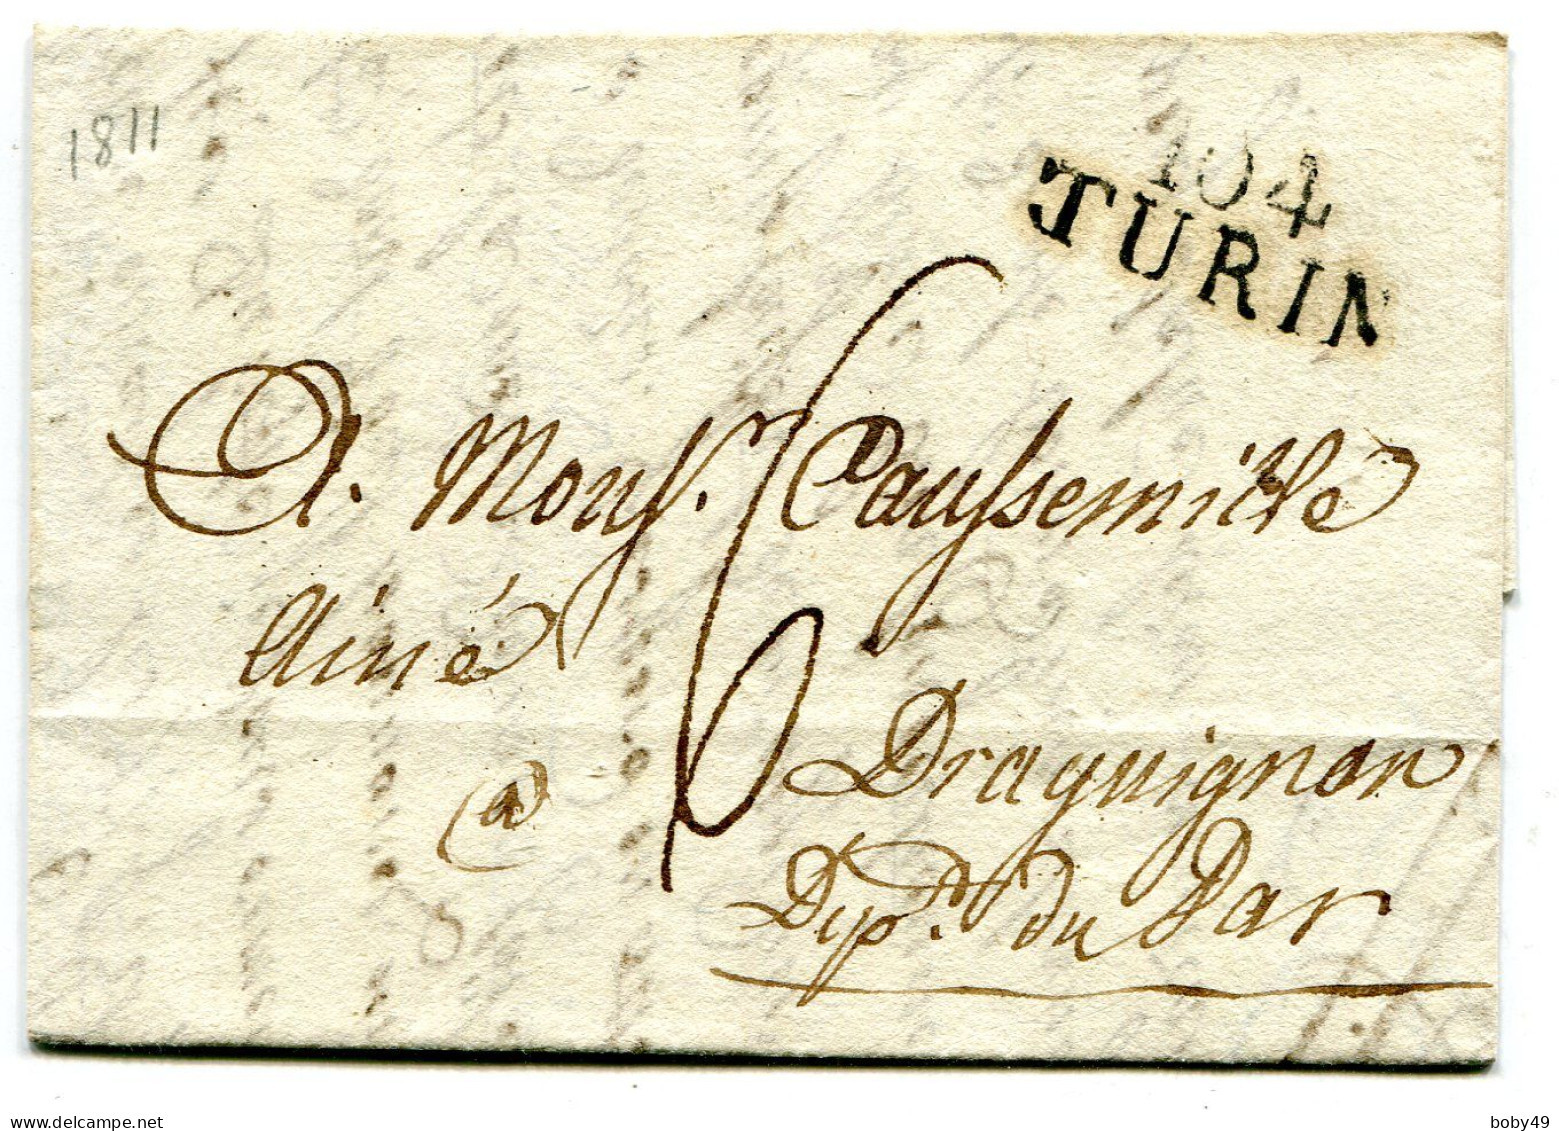 1811
104
TURIN
A. Monsr. Caussemille
Ainé
a
6
Draguignan
Dept. du Var
www.delcampe.net
boby49